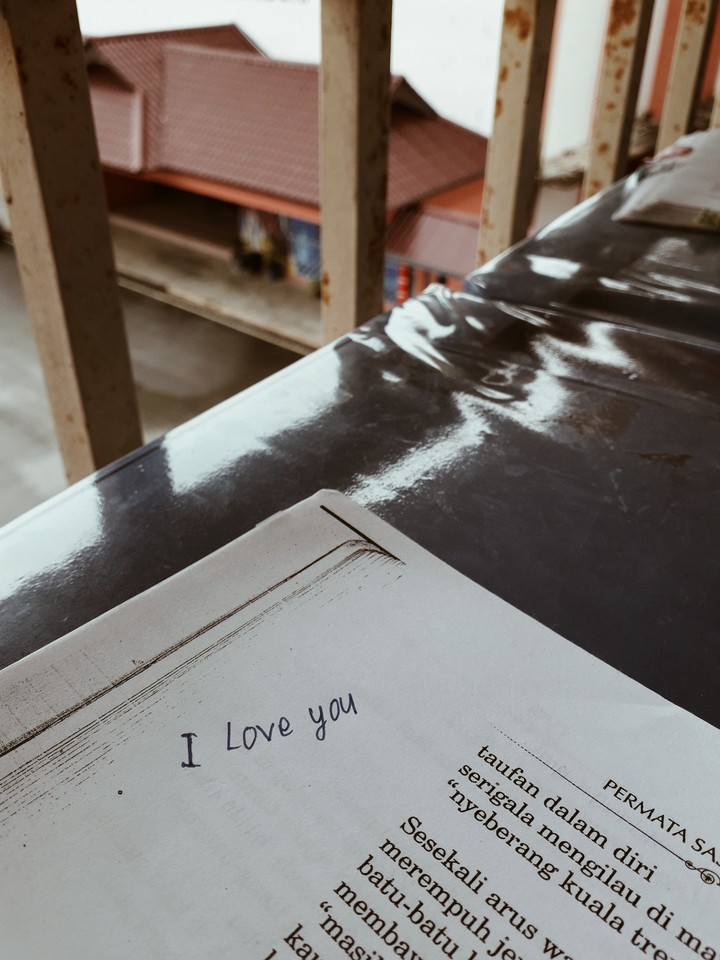 I Love you
PERMATA
taufan dalam diri
serigala mengilau di
"nyeberang kuala
Sesekali arus
merempuh
batu-batu